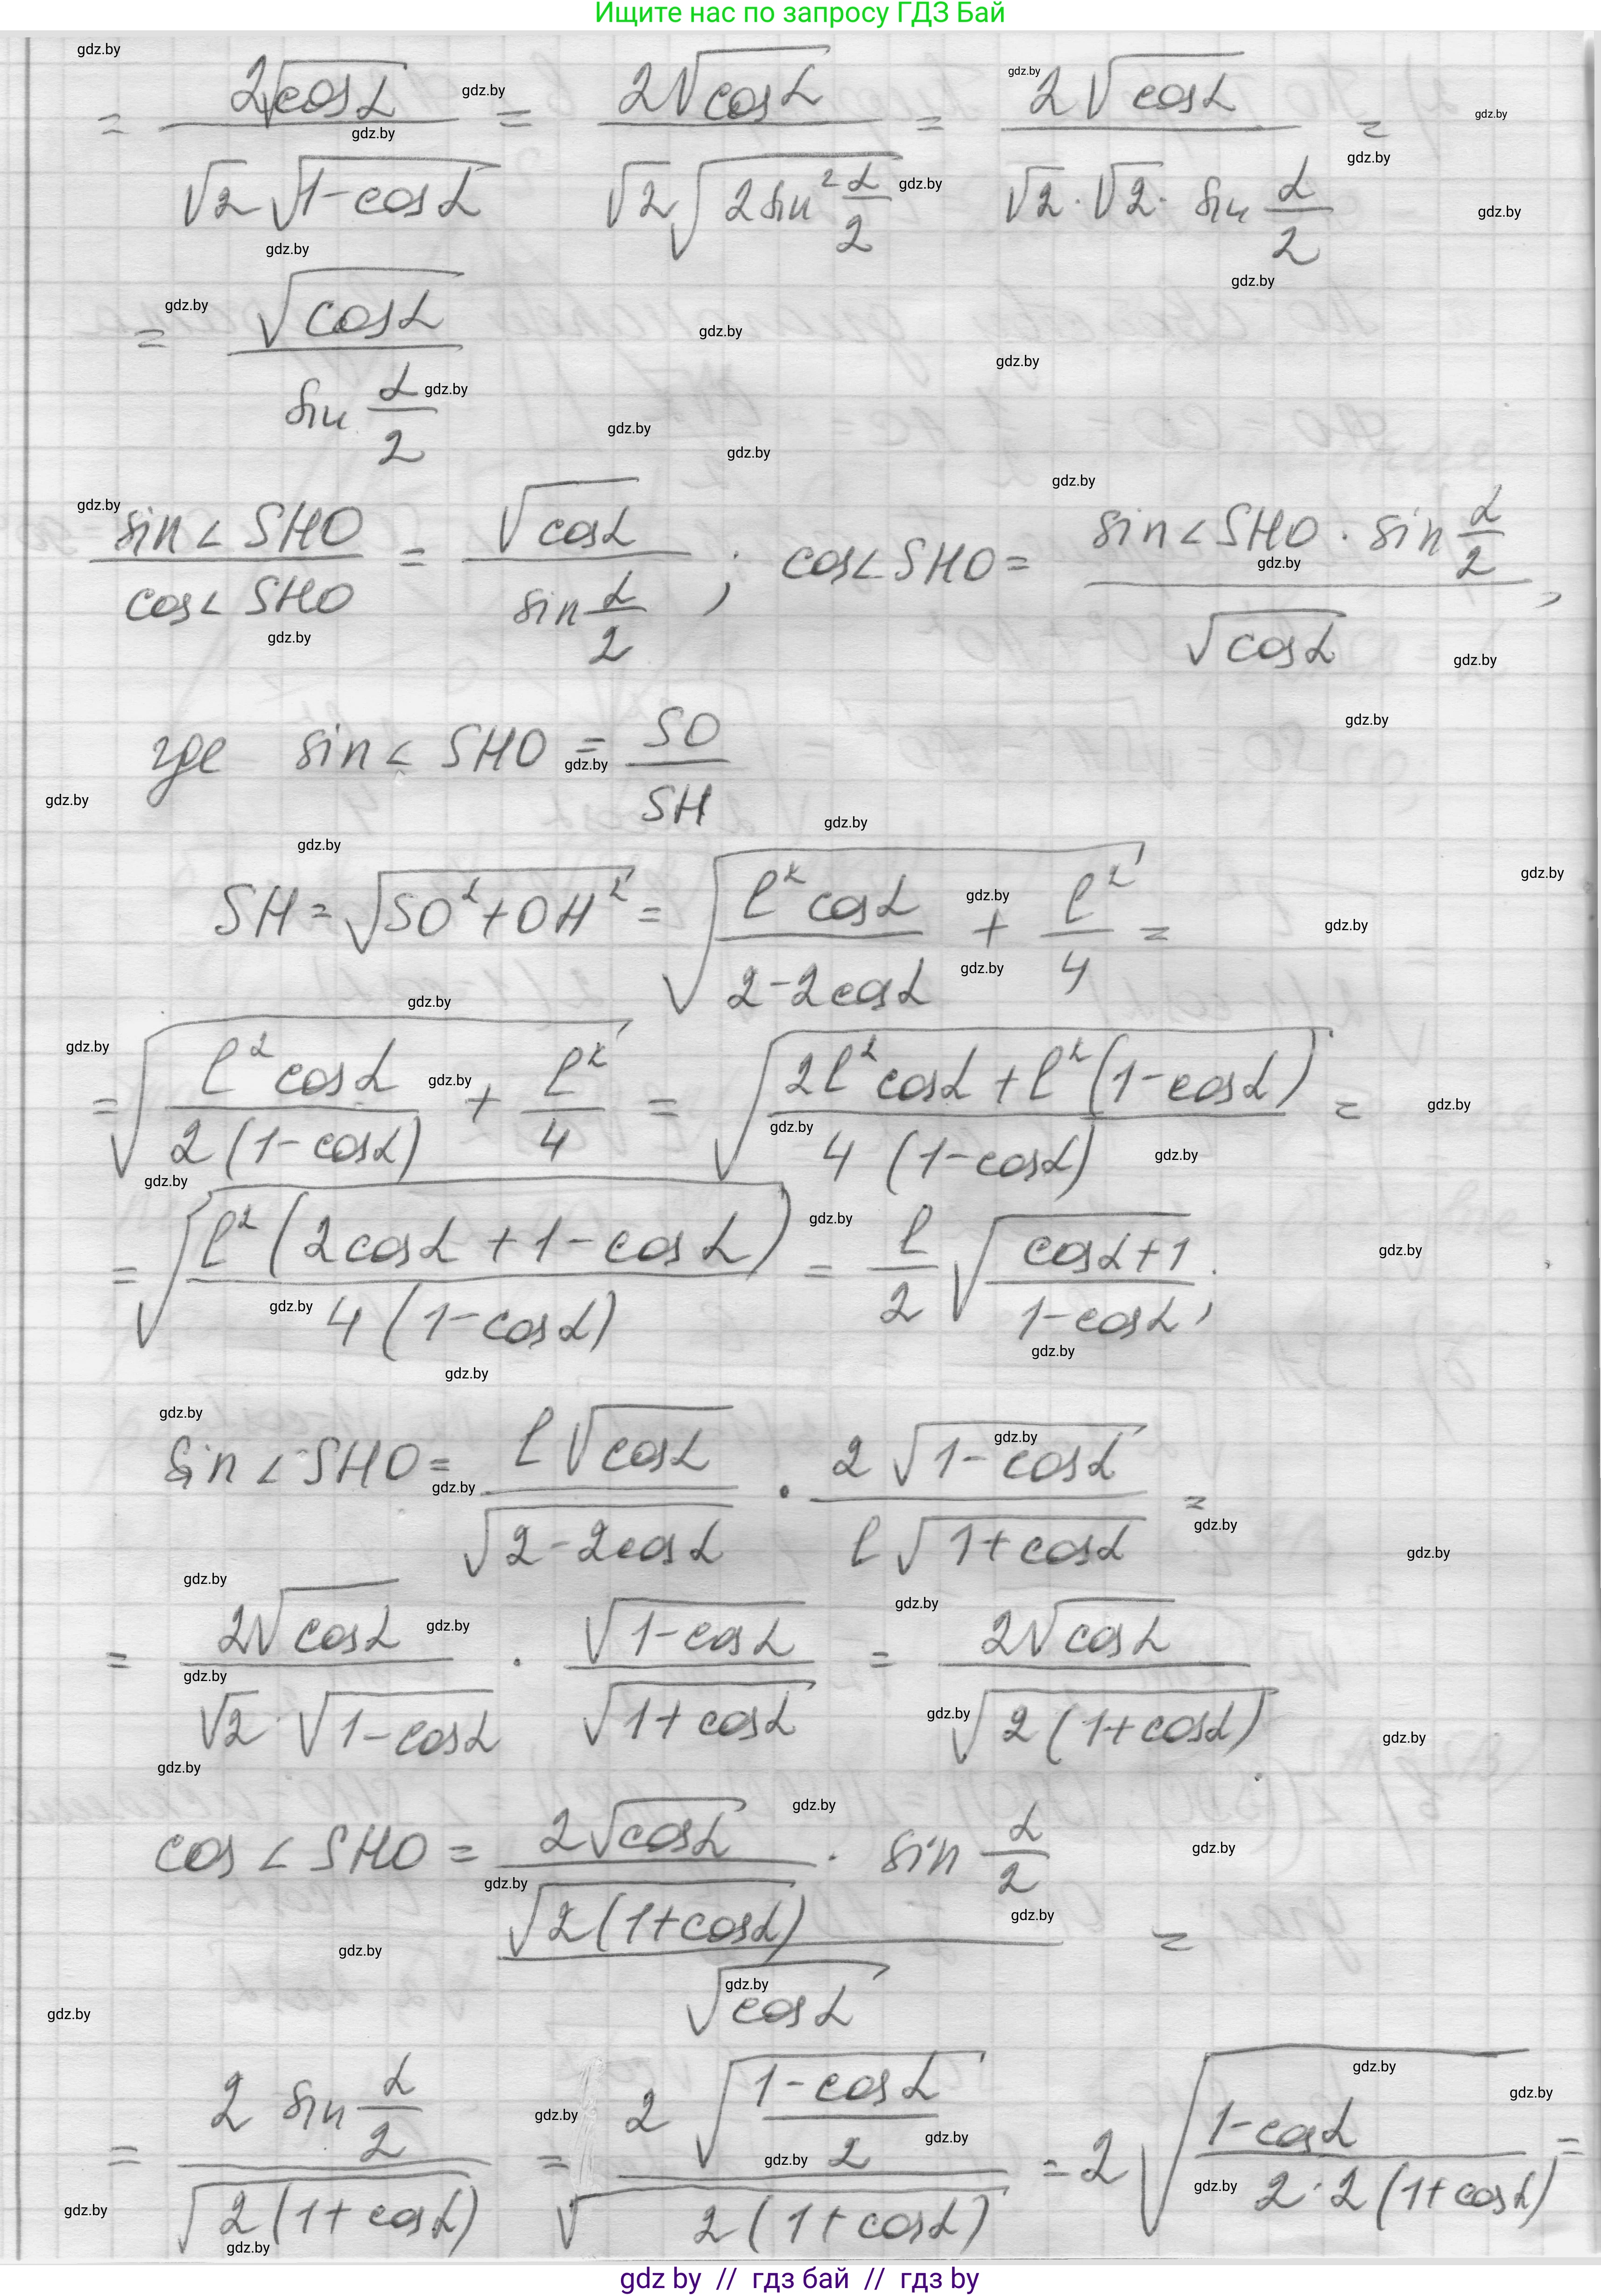 Ищите нас по запросу ГДЗ Бай
= 2√cosα / (√2 √(1-cosα)) = 2√cosα / (√2 √(2 sin² α/2)) = 2√cosα / (√2 · √2 · sin α/2) =
= √cosα / sin α/2
sin∠SHO / cos∠SHO = √cosα / sin α/2 ; cos∠SHO = (sin∠SHO · sin α/2) / √cosα ,
где sin∠SHO = SO / SH
SH = √(SO² + OH²) = √(l² cosα / (2-2cosα) + l² / 4) =
= √(l² cosα / (2(1-cosα)) + l² / 4) = √((2l² cosα + l²(1-cosα)) / (4(1-cosα))) =
= √(l²(2cosα + 1 - cosα) / (4(1-cosα))) = l/2 √((cosα+1) / (1-cosα)) ;
sin∠SHO = l√cosα / √(2-2cosα) · 2√(1-cosα) / (l√(1+cosα)) =
= 2√cosα / (√2 · √(1-cosα)) · √(1-cosα) / √(1+cosα) = 2√cosα / √(2(1+cosα)) .
cos∠SHO = (2√cosα / √(2(1+cosα)) · sin α/2) / √cosα =
= 2 sin α/2 / √(2(1+cosα)) = 2√((1-cosα) / 2) / √(2(1+cosα)) = 2√((1-cosα) / (2·2(1+cosα))) =
gdz by // гдз бай // гдз by